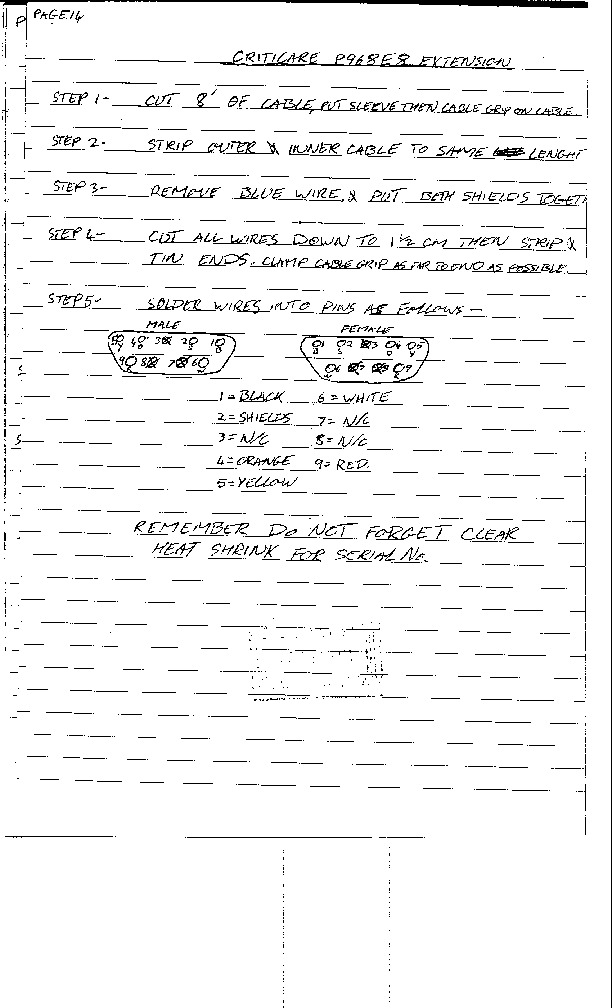 PAGE 14
CRITICARE P968E8 EXTENSION
STEP 1- CUT 8' OF CABLE, PUT SLEEVE THEN CABLE GRIP ON CABLE
STEP 2- STRIP OUTER & INNER CABLE TO SAME LENGHT
STEP 3- REMOVE BLUE WIRE, & PUT BOTH SHIELD'S TOGET
STEP 4- CUT ALL WIRES DOWN TO 1½ CM THEN STRIP &
TIN ENDS. CLAMP CABLE GRIP AS FAR TO END AS POSSIBLE.
STEP 5- SOLDER WIRES INTO PINS AS FOLLOWS -
MALE FEMALE
5 4 3 2 1 1 2 3 4 5
9 8 7 6 6 7 8 9
1 = BLACK 6 = WHITE
2 = SHIELDS 7 = N/C
3 = N/C 8 = N/C
4 = ORANGE 9 = RED.
5 = YELLOW
REMEMBER DO NOT FORGET CLEAR
HEAT SHRINK FOR SERIAL No.